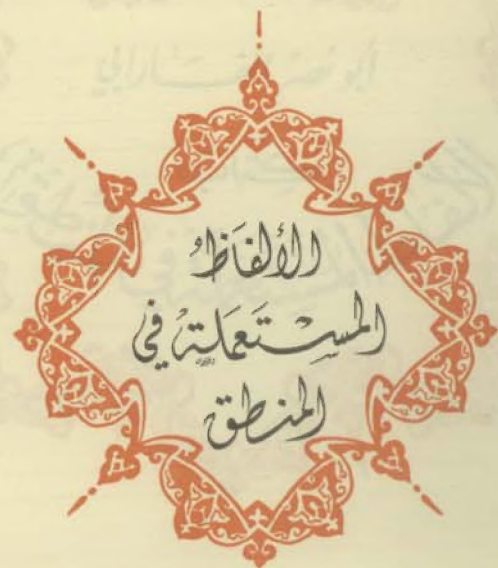 الألفَاظُ
المسْتَعمَلَةُ في
المنطق